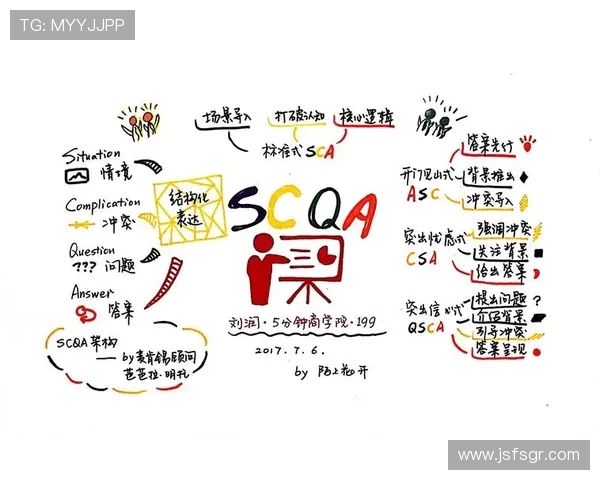 TG: MYYJJPP
场景导入 打破认知 核心逻辑
标准式 SCA
Situation
情境
Complication
冲突
Question
??? 问题
Answer
答案
结构化
表达
SCQA
刘润·5分钟商学院·199
2017.7.6.
by 陌上花开
SCQA架构
——by麦肯锡顾问
芭芭拉·明托
开门见山式
ASC
答案先行
背景推出
冲突导入
突出忧虑式
CSA
强调冲突
关注背景
给出答案
突出信心式
QSCA
提出问题 ?
介绍背景
引导冲突
答案呈现
www.jsfsgr.com